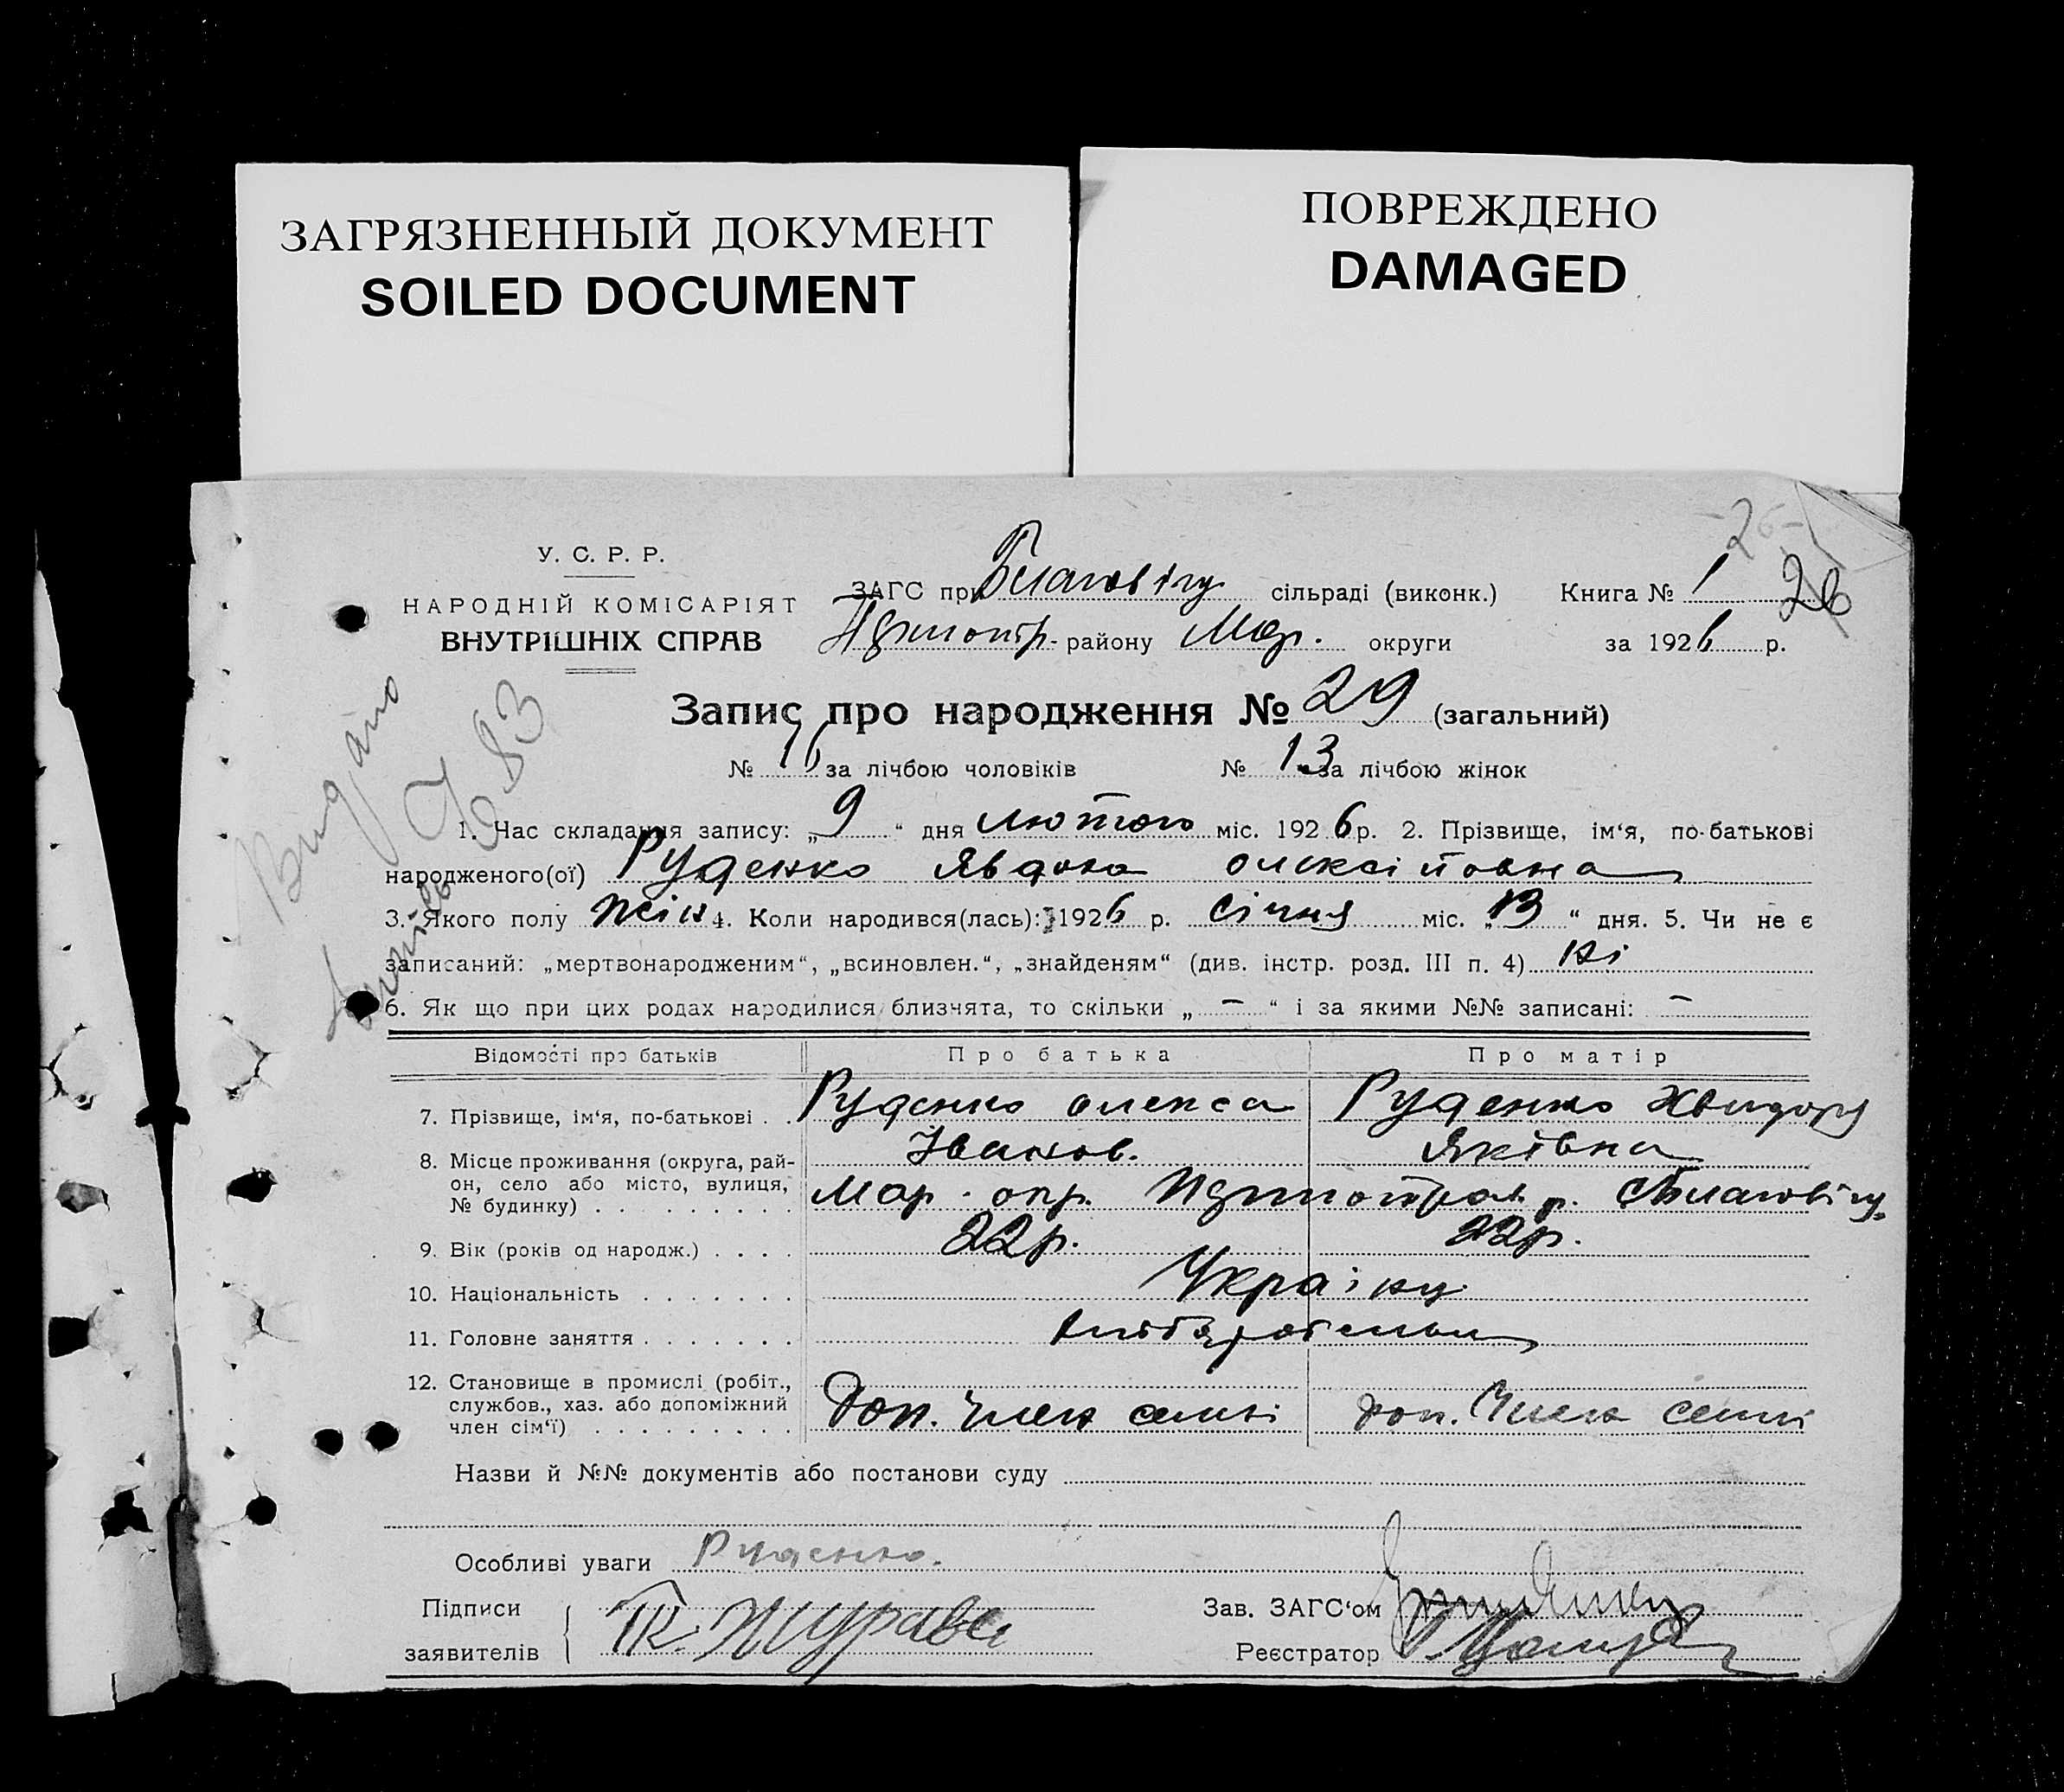 ЗАГРЯЗНЕННЫЙ ДОКУМЕНТ
SOILED DOCUMENT
ПОВРЕЖДЕНО
DAMAGED
У. С. Р. Р.
НАРОДНІЙ КОМІСАРІЯТ
ВНУТРІШНІХ СПРАВ
ЗАГС при сільраді (виконк.) Книга № 1 26
району Мар. округи за 1926 р.
Запис про народження № 29 (загальний)
№ 16 за лічбою чоловіків № 13 за лічбою жінок
Видано
83
1. Час складання запису: „9“ дня лютого міс. 1926 р. 2. Прізвище, ім‘я, по-батькові
народженого(ої) Руденко Явдоха олексіївна
3. Якого полу жін 4. Коли народився(лась): 1926 р. Січня міс. „13“ дня. 5. Чи не є
записаний: „мертвонародженим“, „всиновлен.“, „знайденям“ (див. інстр. розд. III п. 4) ні
6. Як що при цих родах народилися близчята, то скільки „—“ і за якими №№ записані: —
Відомості про батьків Про батька Про матір
7. Прізвище, ім‘я, по-батькові . . Руденко олекса Іванов. Руденко Хведора Яківна
8. Місце проживання (округа, район, село або місто, вулиця, № будинку) . . . . . . . . . Мар. окр.
9. Вік (років од народж.) . . . . 22 р. 22 р.
10. Національність . . . . . . . Україну
11. Головне заняття . . . . . . . хліборобством
12. Становище в промислі (робіт., службов., хаз. або допоміжний член сім‘ї) . . . . . . . . . Доп. Член семьі доп. Член семьі
Назви й №№ документів або постанови суду
Особливі уваги Руденко.
Підписи
заявителів
Зав. ЗАГС‘ом
Реєстратор